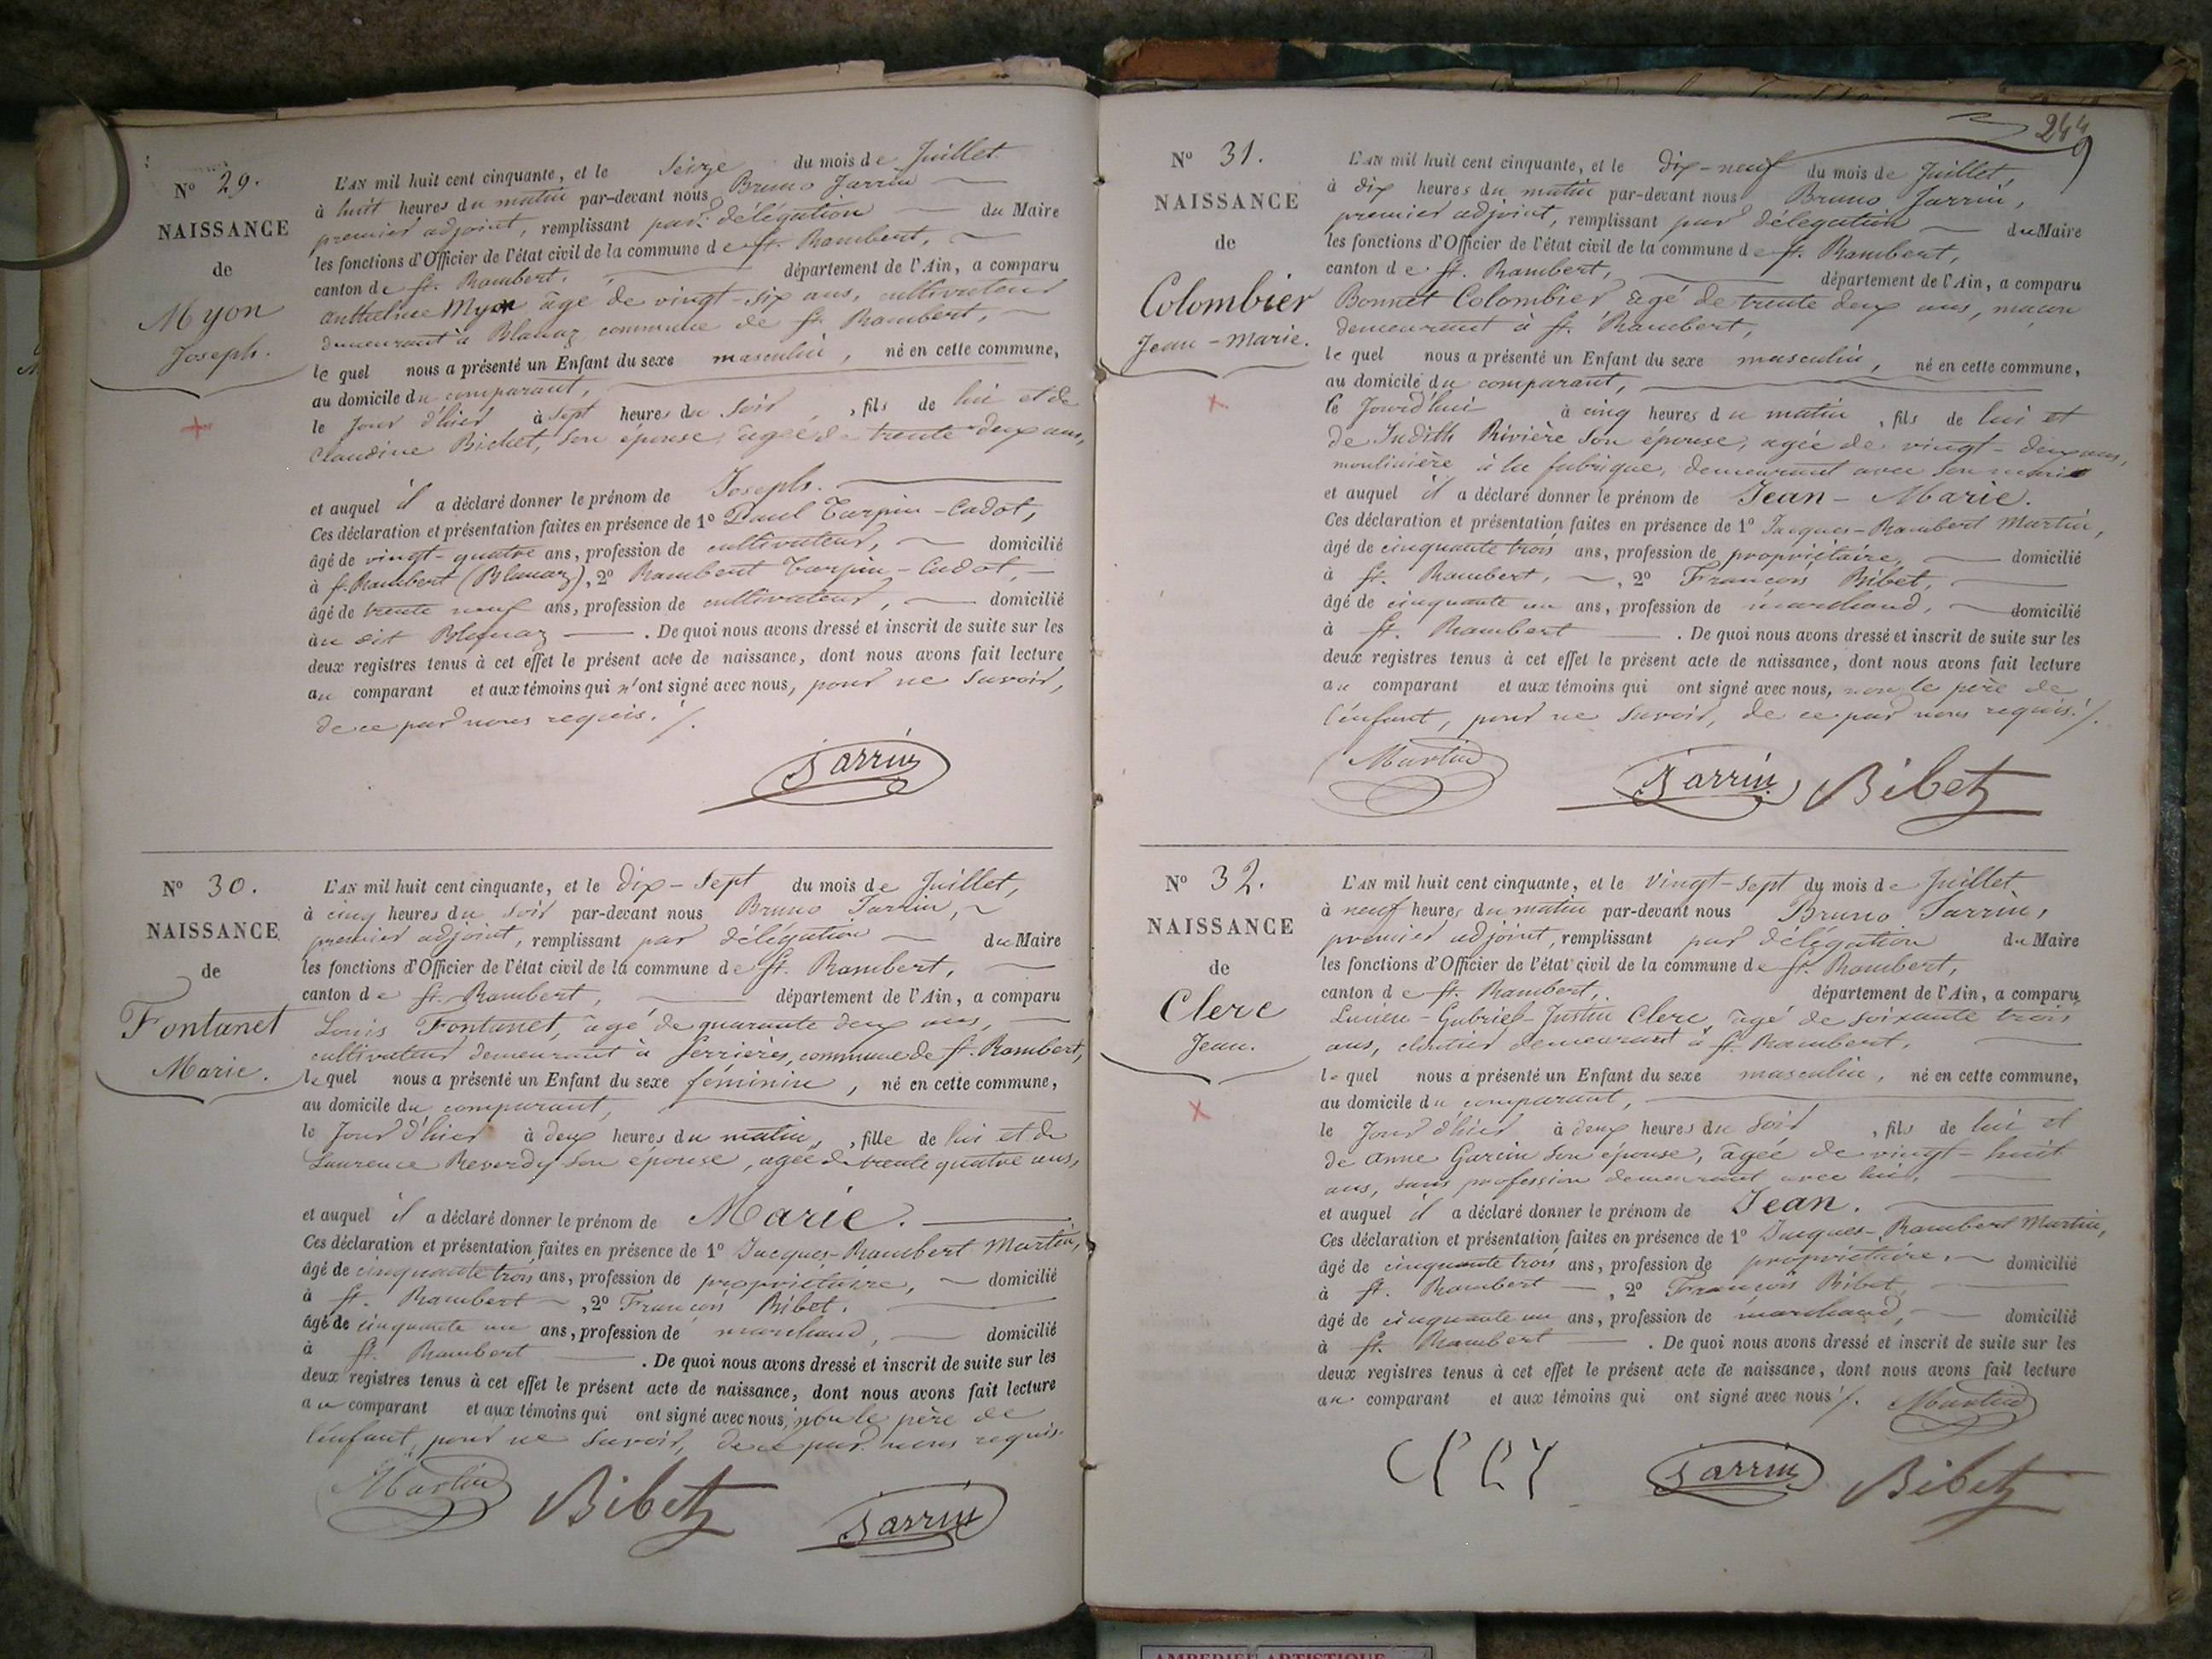 Nº 29.
NAISSANCE
de
Myon
Joseph.
L'AN mil huit cent cinquante, et le Seize du mois de Juillet
à huit heures du matin par-devant nous Bruno Jarrin
premier adjoint, remplissant par délégation du Maire
les fonctions d'Officier de l'état civil de la commune de St. Rambert,
canton de St. Rambert, département de l'Ain, a comparu
Anthelme Myon âgé de vingt-six ans, cultivateur
demeurant à Blanaz commune de St. Rambert,
le quel nous a présenté un Enfant du sexe masculin, né en cette commune,
au domicile du comparant,
le Jour d'hier à sept heures du soir, fils de lui et de
Claudine Bichet, son épouse, âgée de trente deux ans,
et auquel il a déclaré donner le prénom de Joseph.
Ces déclaration et présentation faites en présence de 1º Paul Turpin-Cadot,
âgé de vingt-quatre ans, profession de cultivateur, domicilié
à St. Rambert (Blanaz), 2º Rambert Turpin-Cadot,
âgé de trente neuf ans, profession de cultivateur, domicilié
au dit Blanaz. De quoi nous avons dressé et inscrit de suite sur les
deux registres tenus à cet effet le présent acte de naissance, dont nous avons fait lecture
au comparant et aux témoins qui n'ont signé avec nous, pour ne savoir,
de ce par nous requis./.
Jarrin
Nº 30.
NAISSANCE
de
Fontanet
Marie.
L'AN mil huit cent cinquante, et le dix-sept du mois de Juillet,
à cinq heures du soir par-devant nous Bruno Jarrin,
premier adjoint, remplissant par délégation du Maire
les fonctions d'Officier de l'état civil de la commune de St. Rambert,
canton de St. Rambert, département de l'Ain, a comparu
Louis Fontanet, âgé de quarante deux ans,
cultivateur demeurant à Serrières, commune de St. Rambert,
lequel nous a présenté un Enfant du sexe féminin, né en cette commune,
au domicile du comparant,
le Jour d'hier à deux heures du matin, fille de lui et de
Laurence Reverdy son épouse, agée de trente quatre ans,
et auquel il a déclaré donner le prénom de Marie.
Ces déclaration et présentation faites en présence de 1º Jacques-Rambert Martin,
âgé de cinquante trois ans, profession de propriétaire, domicilié
à St. Rambert, 2º François Bibet,
âgé de cinquante un ans, profession de marchand, domicilié
à St. Rambert. De quoi nous avons dressé et inscrit de suite sur les
deux registres tenus à cet effet le présent acte de naissance, dont nous avons fait lecture
au comparant et aux témoins qui ont signé avec nous, non le père de
l'enfant, pour ne savoir, de ce par nous requis.
Martin Bibet Jarrin
244
Nº 31.
NAISSANCE
de
Colombier
Jean-Marie.
L'AN mil huit cent cinquante, et le dix-neuf du mois de Juillet,
à dix heures du matin par-devant nous Bruno Jarrin,
premier adjoint, remplissant par délégation du Maire
les fonctions d'Officier de l'état civil de la commune de St. Rambert,
canton de St. Rambert, département de l'Ain, a comparu
Bonnet Colombier âgé de trente deux ans, maçon
demeurant à St. Rambert,
le quel nous a présenté un Enfant du sexe masculin, né en cette commune,
au domicile du comparant,
le Jourd'hui à cinq heures du matin, fils de lui et
de Judith Rivière son épouse, agée de vingt-deux ans,
moulinière à la fabrique, demeurant avec son mari
et auquel il a déclaré donner le prénom de Jean-Marie.
Ces déclaration et présentation faites en présence de 1º Jacques-Rambert Martin,
âgé de cinquante trois ans, profession de propriétaire, domicilié
à St. Rambert, 2º François Bibet,
âgé de cinquante un ans, profession de marchand, domicilié
à St. Rambert. De quoi nous avons dressé et inscrit de suite sur les
deux registres tenus à cet effet le présent acte de naissance, dont nous avons fait lecture
au comparant et aux témoins qui ont signé avec nous, non le père de
l'enfant, pour ne savoir, de ce par nous requis./.
Martin Jarrin Bibet
Nº 32.
NAISSANCE
de
Clerc
Jean.
L'AN mil huit cent cinquante, et le Vingt-sept du mois de Juillet
à neuf heures du matin par-devant nous Bruno Jarrin,
premier adjoint, remplissant par délégation du Maire
les fonctions d'Officier de l'état civil de la commune de St. Rambert,
canton de St. Rambert, département de l'Ain, a comparu
Lucien-Gabriel-Justin Clerc, âgé de soixante trois
ans, cloutier demeurant à St. Rambert,
le quel nous a présenté un Enfant du sexe masculin, né en cette commune,
au domicile du comparant,
le Jour d'hier à deux heures du soir, fils de lui et
de Anne Garin son épouse, âgée de vingt-huit
ans, sans profession demeurant avec lui,
et auquel il a déclaré donner le prénom de Jean.
Ces déclaration et présentation faites en présence de 1º Jacques-Rambert Martin,
âgé de cinquante trois ans, profession de propriétaire, domicilié
à St. Rambert, 2º François Bibet,
âgé de cinquante un ans, profession de marchand, domicilié
à St. Rambert. De quoi nous avons dressé et inscrit de suite sur les
deux registres tenus à cet effet le présent acte de naissance, dont nous avons fait lecture
au comparant et aux témoins qui ont signé avec nous./. Martin
Jarrin Bibet
AMBERIEU ARTISTIQUE